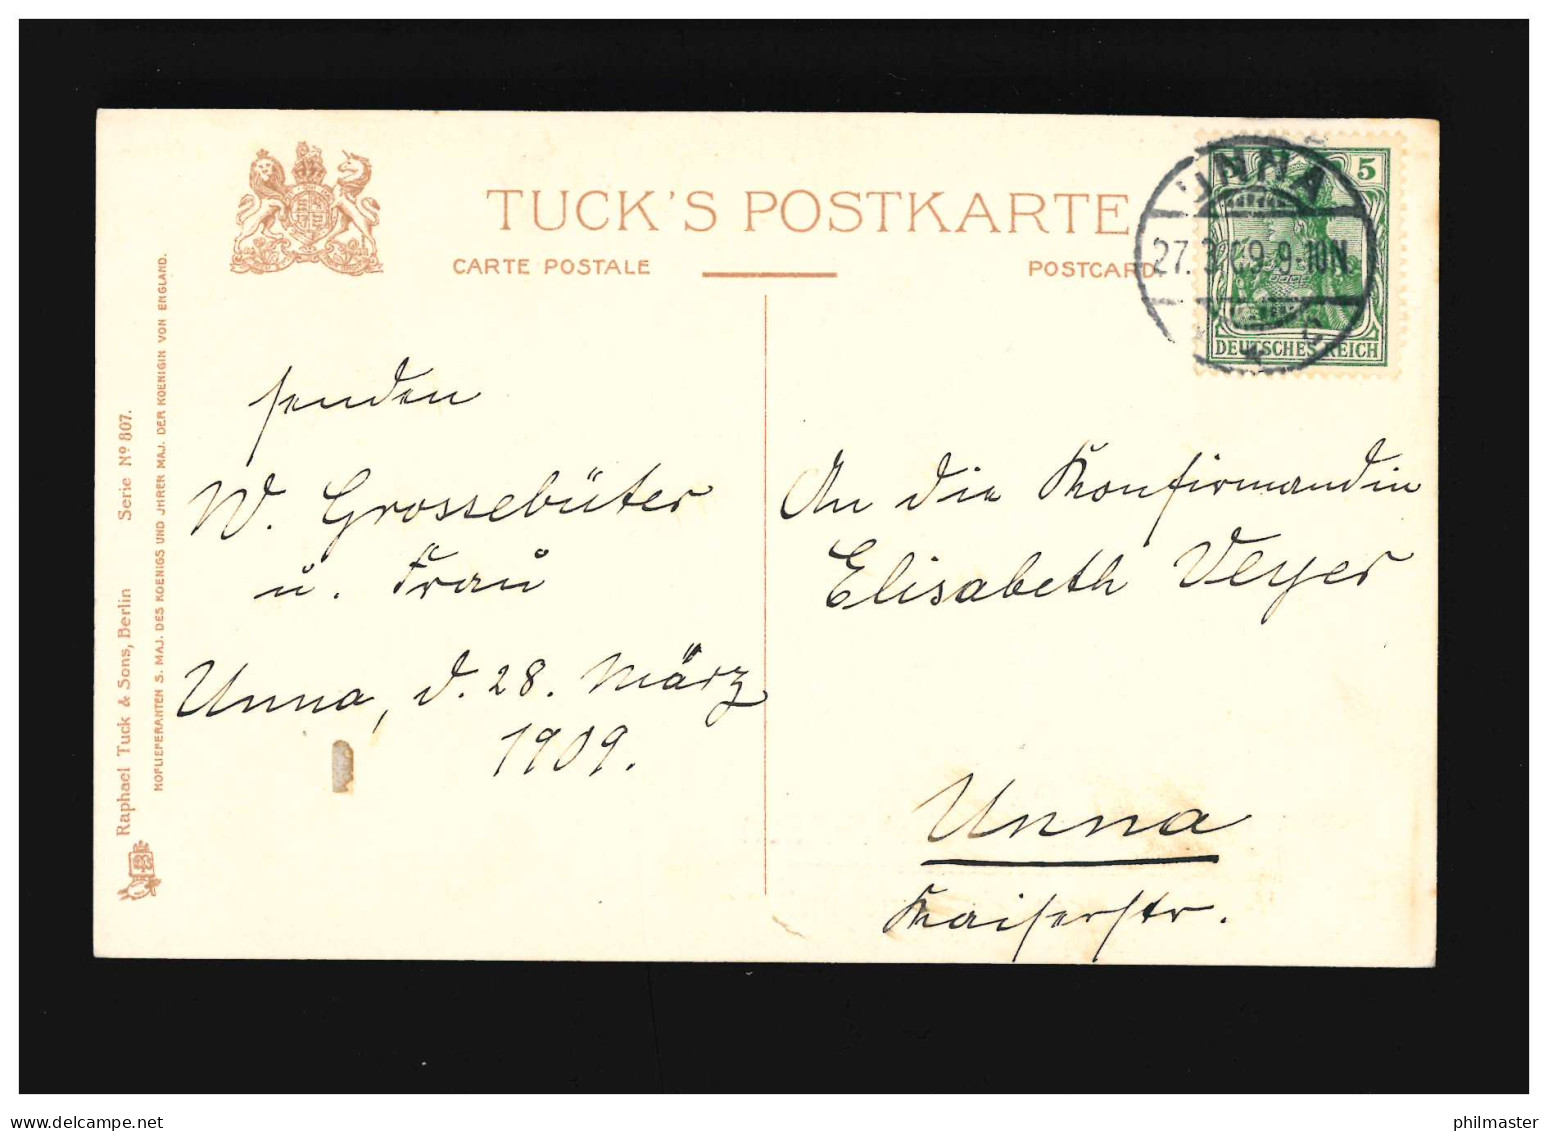 TUCK'S POSTKARTE
CARTE POSTALE
POSTCARD
UNNA
27. 3. 09. 9-10N.
* * c
5
DEUTSCHES REICH
senden
W. Grossebüter
u. Frau
Unna, d. 28. März
1909.
An die Konfirmandin
Elisabeth Veyer
Unna
Kaiserstr.
Raphael Tuck & Sons, Berlin Serie Nº 807.
HOFLIEFERANTEN S. MAJ. DES KOENIGS UND JHRER MAJ. DER KOENIGIN VON ENGLAND.
www.delcampe.net
philmaster